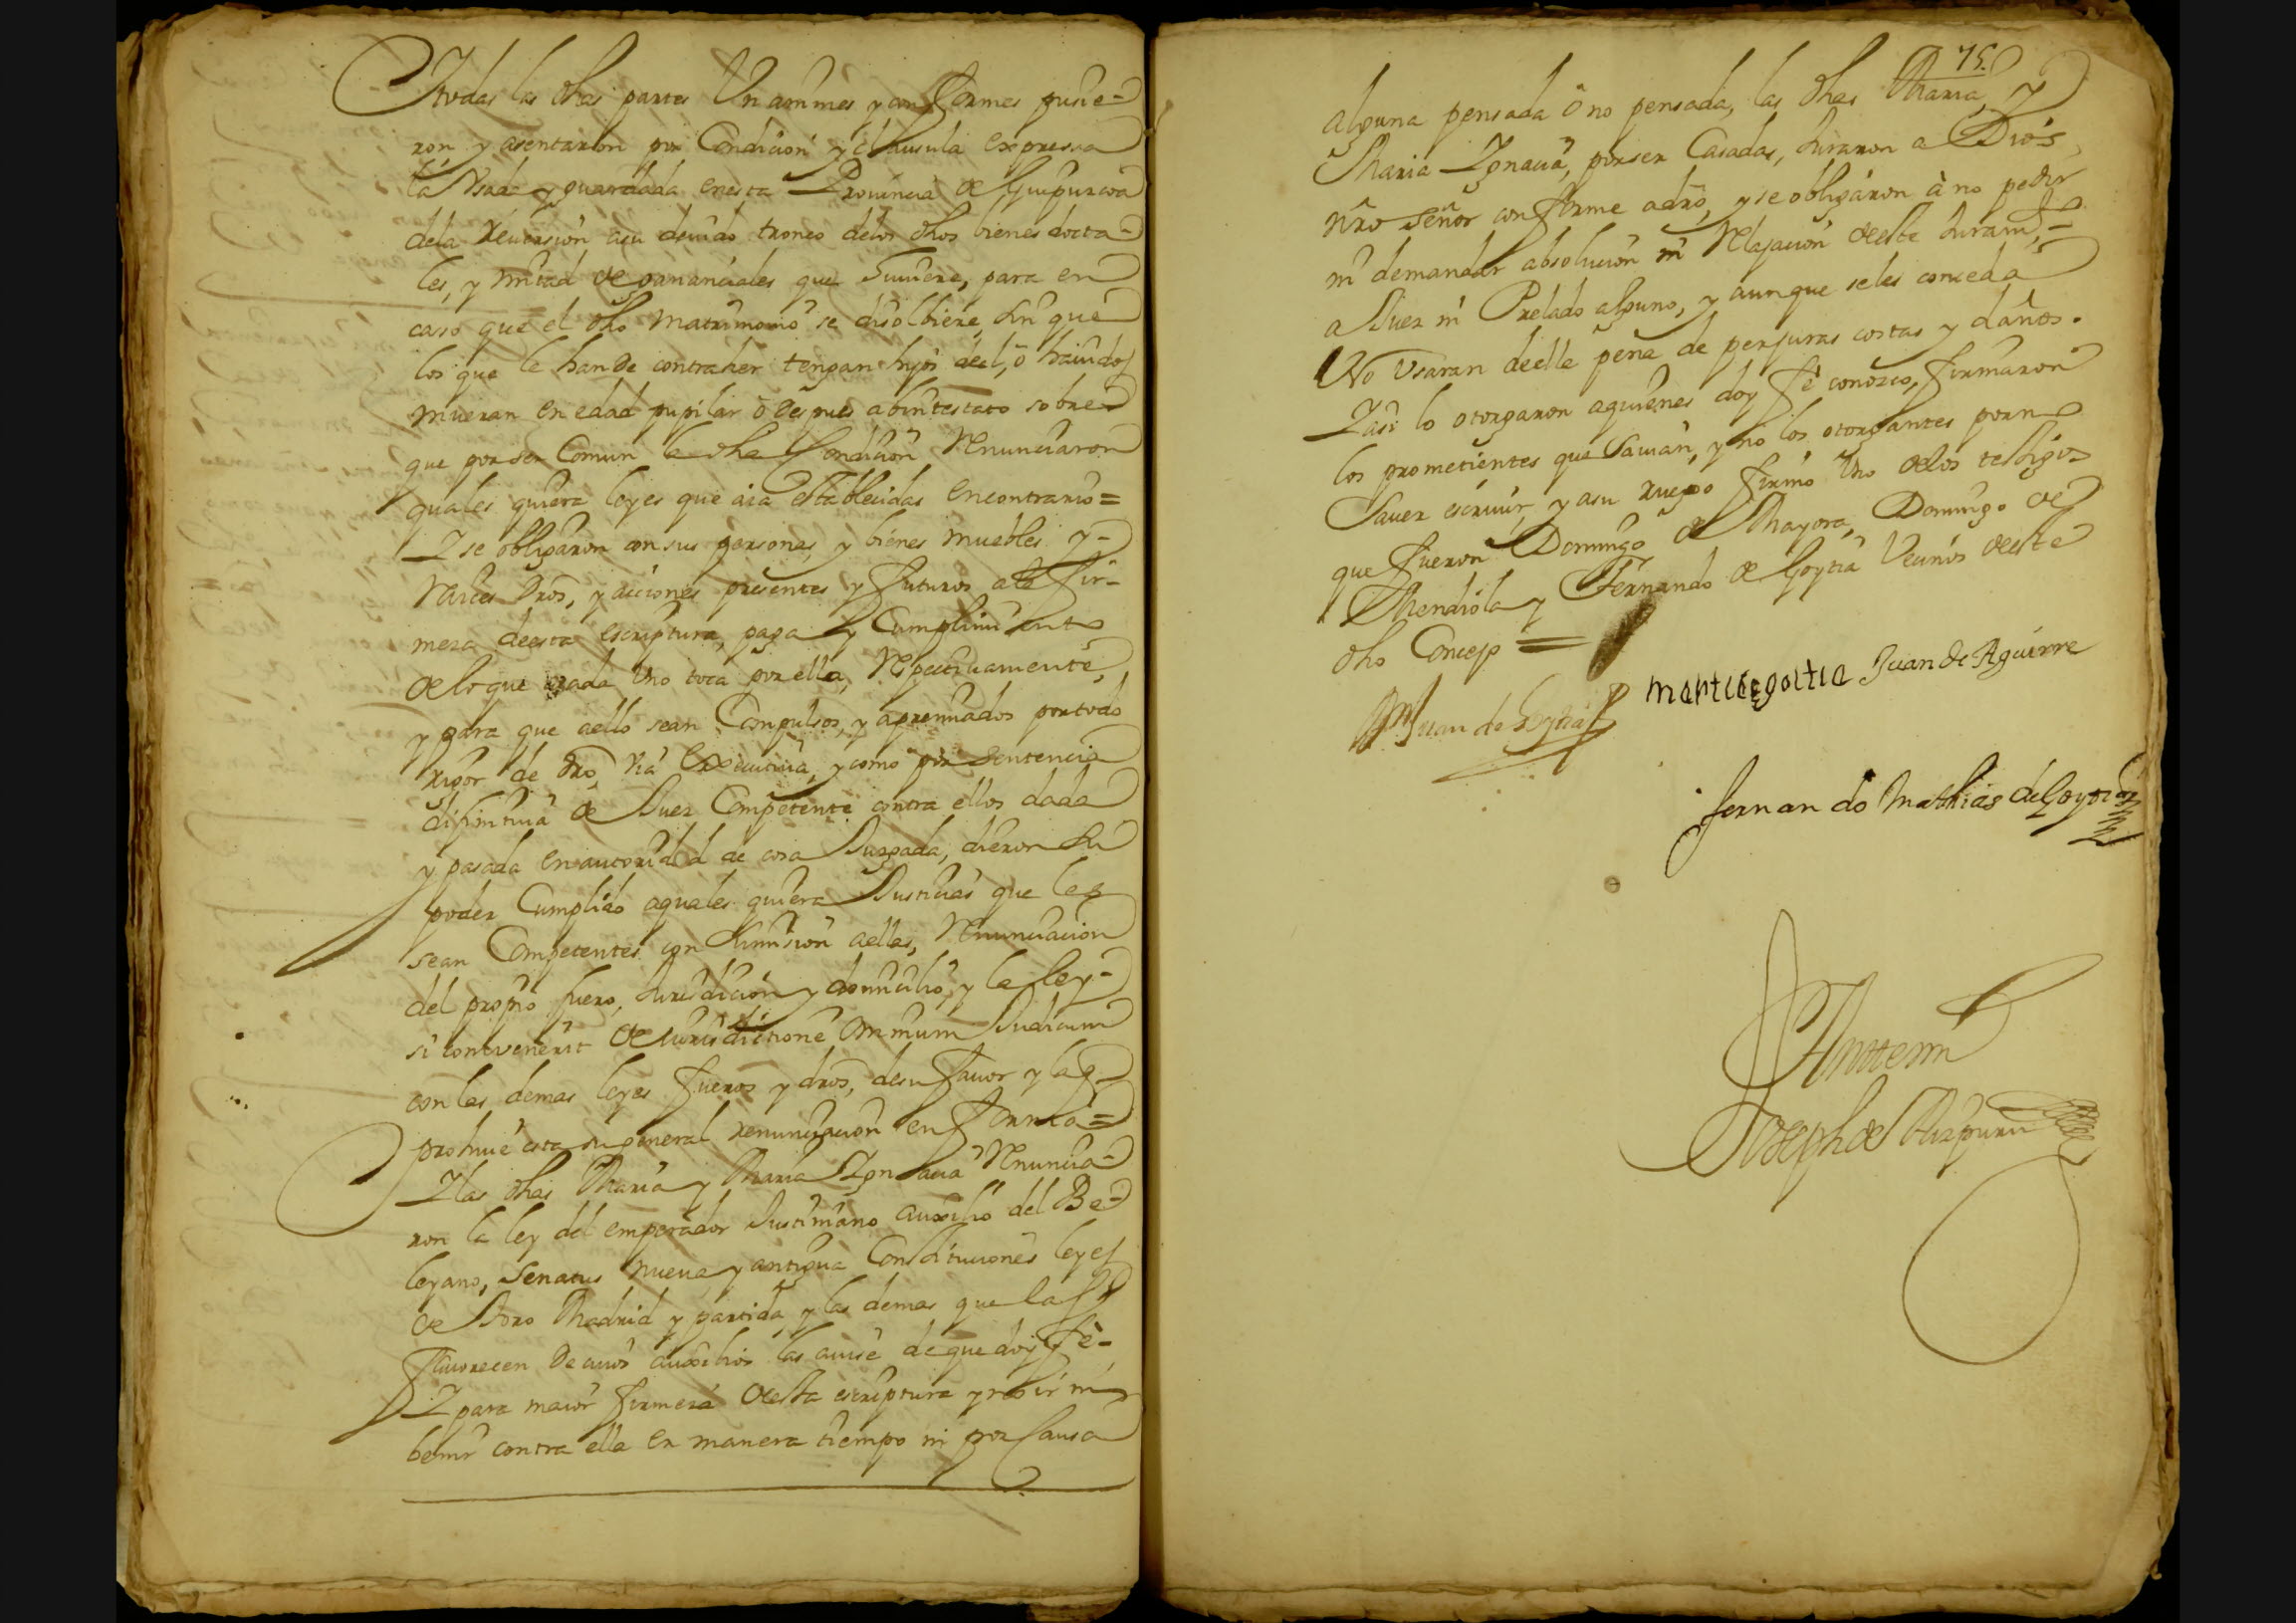 Y todas las dhas partes Unanimes y conformes pusie-
ron y asentaron por Condicion y clausula expressa
la Usada y guardada enesta Provincia de Guipuzcoa
dela Reversion asu devido tronco delos dhos bienes dota-
les, y mitad de gananciales que huviere, para en
caso que el dho Matrimonio se disolbiere, sin que
los que le han de contraher tengan hijos deel, ô haviendos
mueran en edad pupilar ô despues abintestato sobre
que por ser Comun la dha Condicion Renunciaron
quales quiera leyes que aia establecidas encontrario =
Y se obligaron con sus personas, y bienes muebles y-
Raices dros, y acciones presentes y futuros ala fir-
meza deesta escriptura, paga y Cumplimiento
delo que acada Uno toca por ella, Respectivamente,
y para que aello sean Compulsos, y apremiados por todo
rigor de dro, via executiva, y como por sentencia
difinitiva de Juez Competente contra ellos dada
y pasada en autoridad de cosa Juzgada, dieron su
poder Cumplido aquales quiera Justicias que les
sean Competentes con sumision aellas, Renunciacion
del propio fuero, Jurisdicion y domicilio, y la ley-
si convenerit de Jurisdictione Omnium Judicum
con las demas leyes fueros y dros, desu favor y la q
prohive esta su general renunciacion en forma =
Y las dhas Maria y Maria Ignacia Renuncia-
ron la ley del emperador Justiniano auxilio del Be-
leyano, Senatus nueva y antigua Constituciones leyes
de Toro Madrid y partida y las demas que las
favorecen de cuios auxilios las avise de que doy fe-
Y para maior firmeza deesta escriptura y no ir ni
benir contra ella en manera tiempo ni por Causa
75.
alguna pensada ô no pensada, las dhas Maria, Y
Maria Ignacia, por ser Casadas, Juraron a Dios
nro señor conforme adro, y se obligaron â no pedir
ni demandar absolucion ni Relajacion deeste Juramto,
a Juez ni Prelado alguno, y aunque se les conceda
No Usaran deella pena de perjuras costas y daños.
Y asi lo otorgaron aquienes doy fe conozco, firmaron
los prometientes que Savian, y no los otorgantes por no
Saver escrivir, y asu ruego firmo Uno delos testigos
que fueron Domingo de Mayora, Domingo de
Mendiola y Fernando de Goytia Vecinos deeste
dho Concejo =
Juan de Goytia
Martin egoitia Juan de Aguirre
fernando Mathias de Goytia
Ante mi
Joseph de Aizpuru